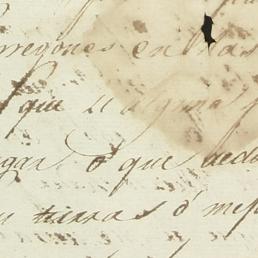 rregones en las
que si alguna
gar o que
tierras o' mej